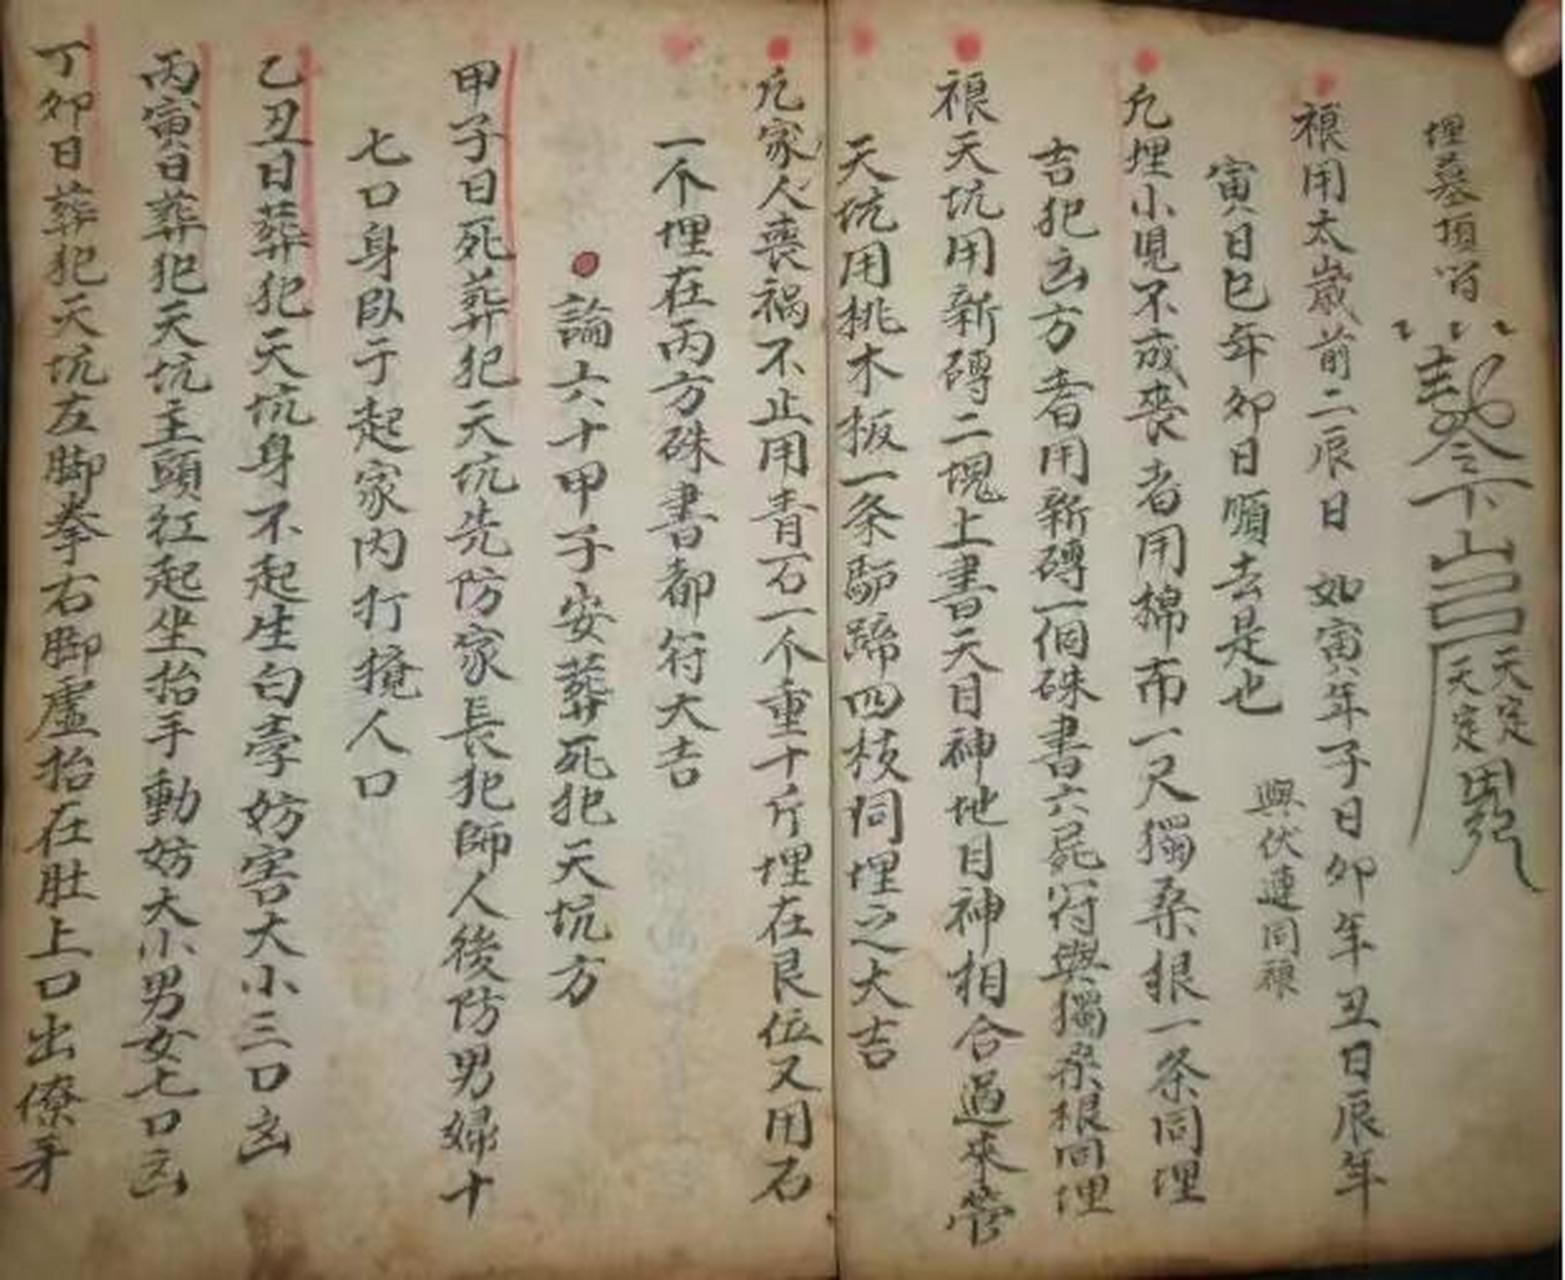 埋墓頂百
敕令下山 天定 天定
禳用太歲前二辰日 如寅年子日卯年丑日辰年
寅日巳年卯日順去是也
與伏連同禳
凢埋小児不成喪者用棉布一尺獨桑根一条同埋
吉犯玄方者用新磚一個硃書六冕符與獨桑根同埋
禳天坑用新磚二塊上書天目神地目神相合過來管
天坑用桃木板一条馿蹄四枝同埋之大吉
凢家人喪禍不止用青石一个重十斤埋在艮位又用石
一个埋在丙方硃書都符大吉
論六十甲子安葬死犯天坑方
甲子日死葬犯天坑先防家長犯師人後防男婦十
七口身臥于起家内打攪人口
乙丑日葬犯天坑身不起生白孛妨害大小三口玄
丙寅日葬犯天坑主頭紅起坐抬手動妨大小男女七口玄
丁卯日葬犯天坑左脚拳右脚虛抬在肚上口出僚牙